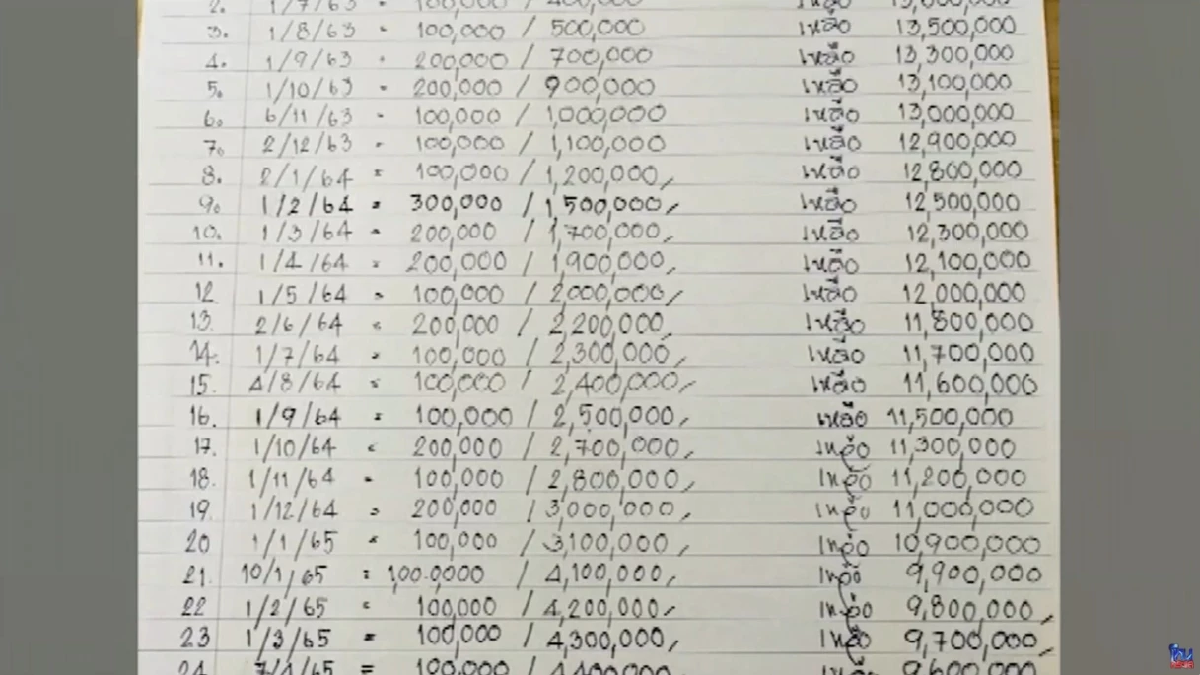 2. 1/7/63 = 100,000 / 400,000 เหลือ 13,600,000
3. 1/8/63 = 100,000 / 500,000 เหลือ 13,500,000
4. 1/9/63 = 200,000 / 700,000 เหลือ 13,300,000
5. 1/10/63 = 200,000 / 900,000 เหลือ 13,100,000
6. 6/11/63 = 100,000 / 1,000,000 เหลือ 13,000,000
7. 2/12/63 = 100,000 / 1,100,000 เหลือ 12,900,000
8. 2/1/64 = 100,000 / 1,200,000, เหลือ 12,800,000
9. 1/2/64 = 300,000 / 1,500,000, เหลือ 12,500,000
10. 1/3/64 = 200,000 / 1,700,000, เหลือ 12,300,000
11. 1/4/64 = 200,000 / 1,900,000, เหลือ 12,100,000
12 1/5/64 = 100,000 / 2,000,000, เหลือ 12,000,000
13. 2/6/64 = 200,000 / 2,200,000, เหลือ 11,800,000
14. 1/7/64 = 100,000 / 2,300,000, เหลือ 11,700,000
15. 4/8/64 = 100,000 / 2,400,000, เหลือ 11,600,000
16. 1/9/64 = 100,000 / 2,500,000, เหลือ 11,500,000
17. 1/10/64 = 200,000 / 2,700,000, เหลือ 11,300,000
18. 1/11/64 = 100,000 / 2,800,000, เหลือ 11,200,000
19. 1/12/64 = 200,000 / 3,000,000, เหลือ 11,000,000
20 1/1/65 = 100,000 / 3,100,000, เหลือ 10,900,000
21. 10/1/65 = 100.0000 / 4,100,000, เหลือ 9,900,000
22 1/2/65 = 100,000 / 4,200,000, เหลือ 9,800,000,
23 1/3/65 = 100,000 / 4,300,000, เหลือ 9,700,000,
24 7/4/65 = 100,000 / 4,400,000 เหลือ 9,600,000